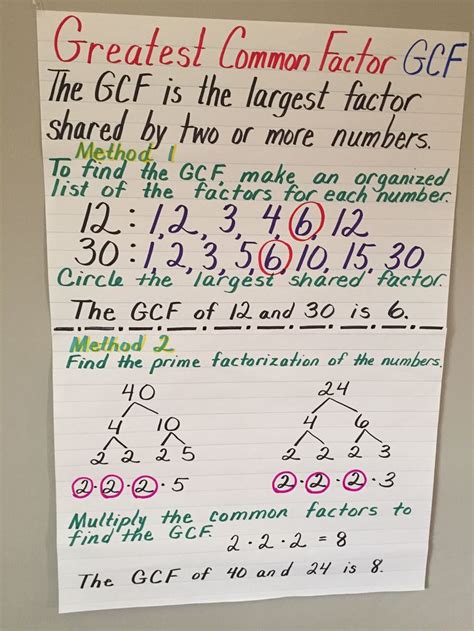 Greatest Common Factor GCF
The GCF is the largest factor
shared by two or more numbers.
Method 1
To find the GCF, make an organized
list of the factors for each number.
12 : 1, 2, 3, 4, 6, 12
30 : 1, 2, 3, 5, 6, 10, 15, 30
Circle the largest shared factor.
The GCF of 12 and 30 is 6.
Method 2
Find the prime factorization of the numbers.
40 24
4 10 4 6
2 2 2 5 2 2 2 3
2·2·2·5 2·2·2·3
Multiply the common factors to
find the GCF. 2·2·2 = 8
The GCF of 40 and 24 is 8.